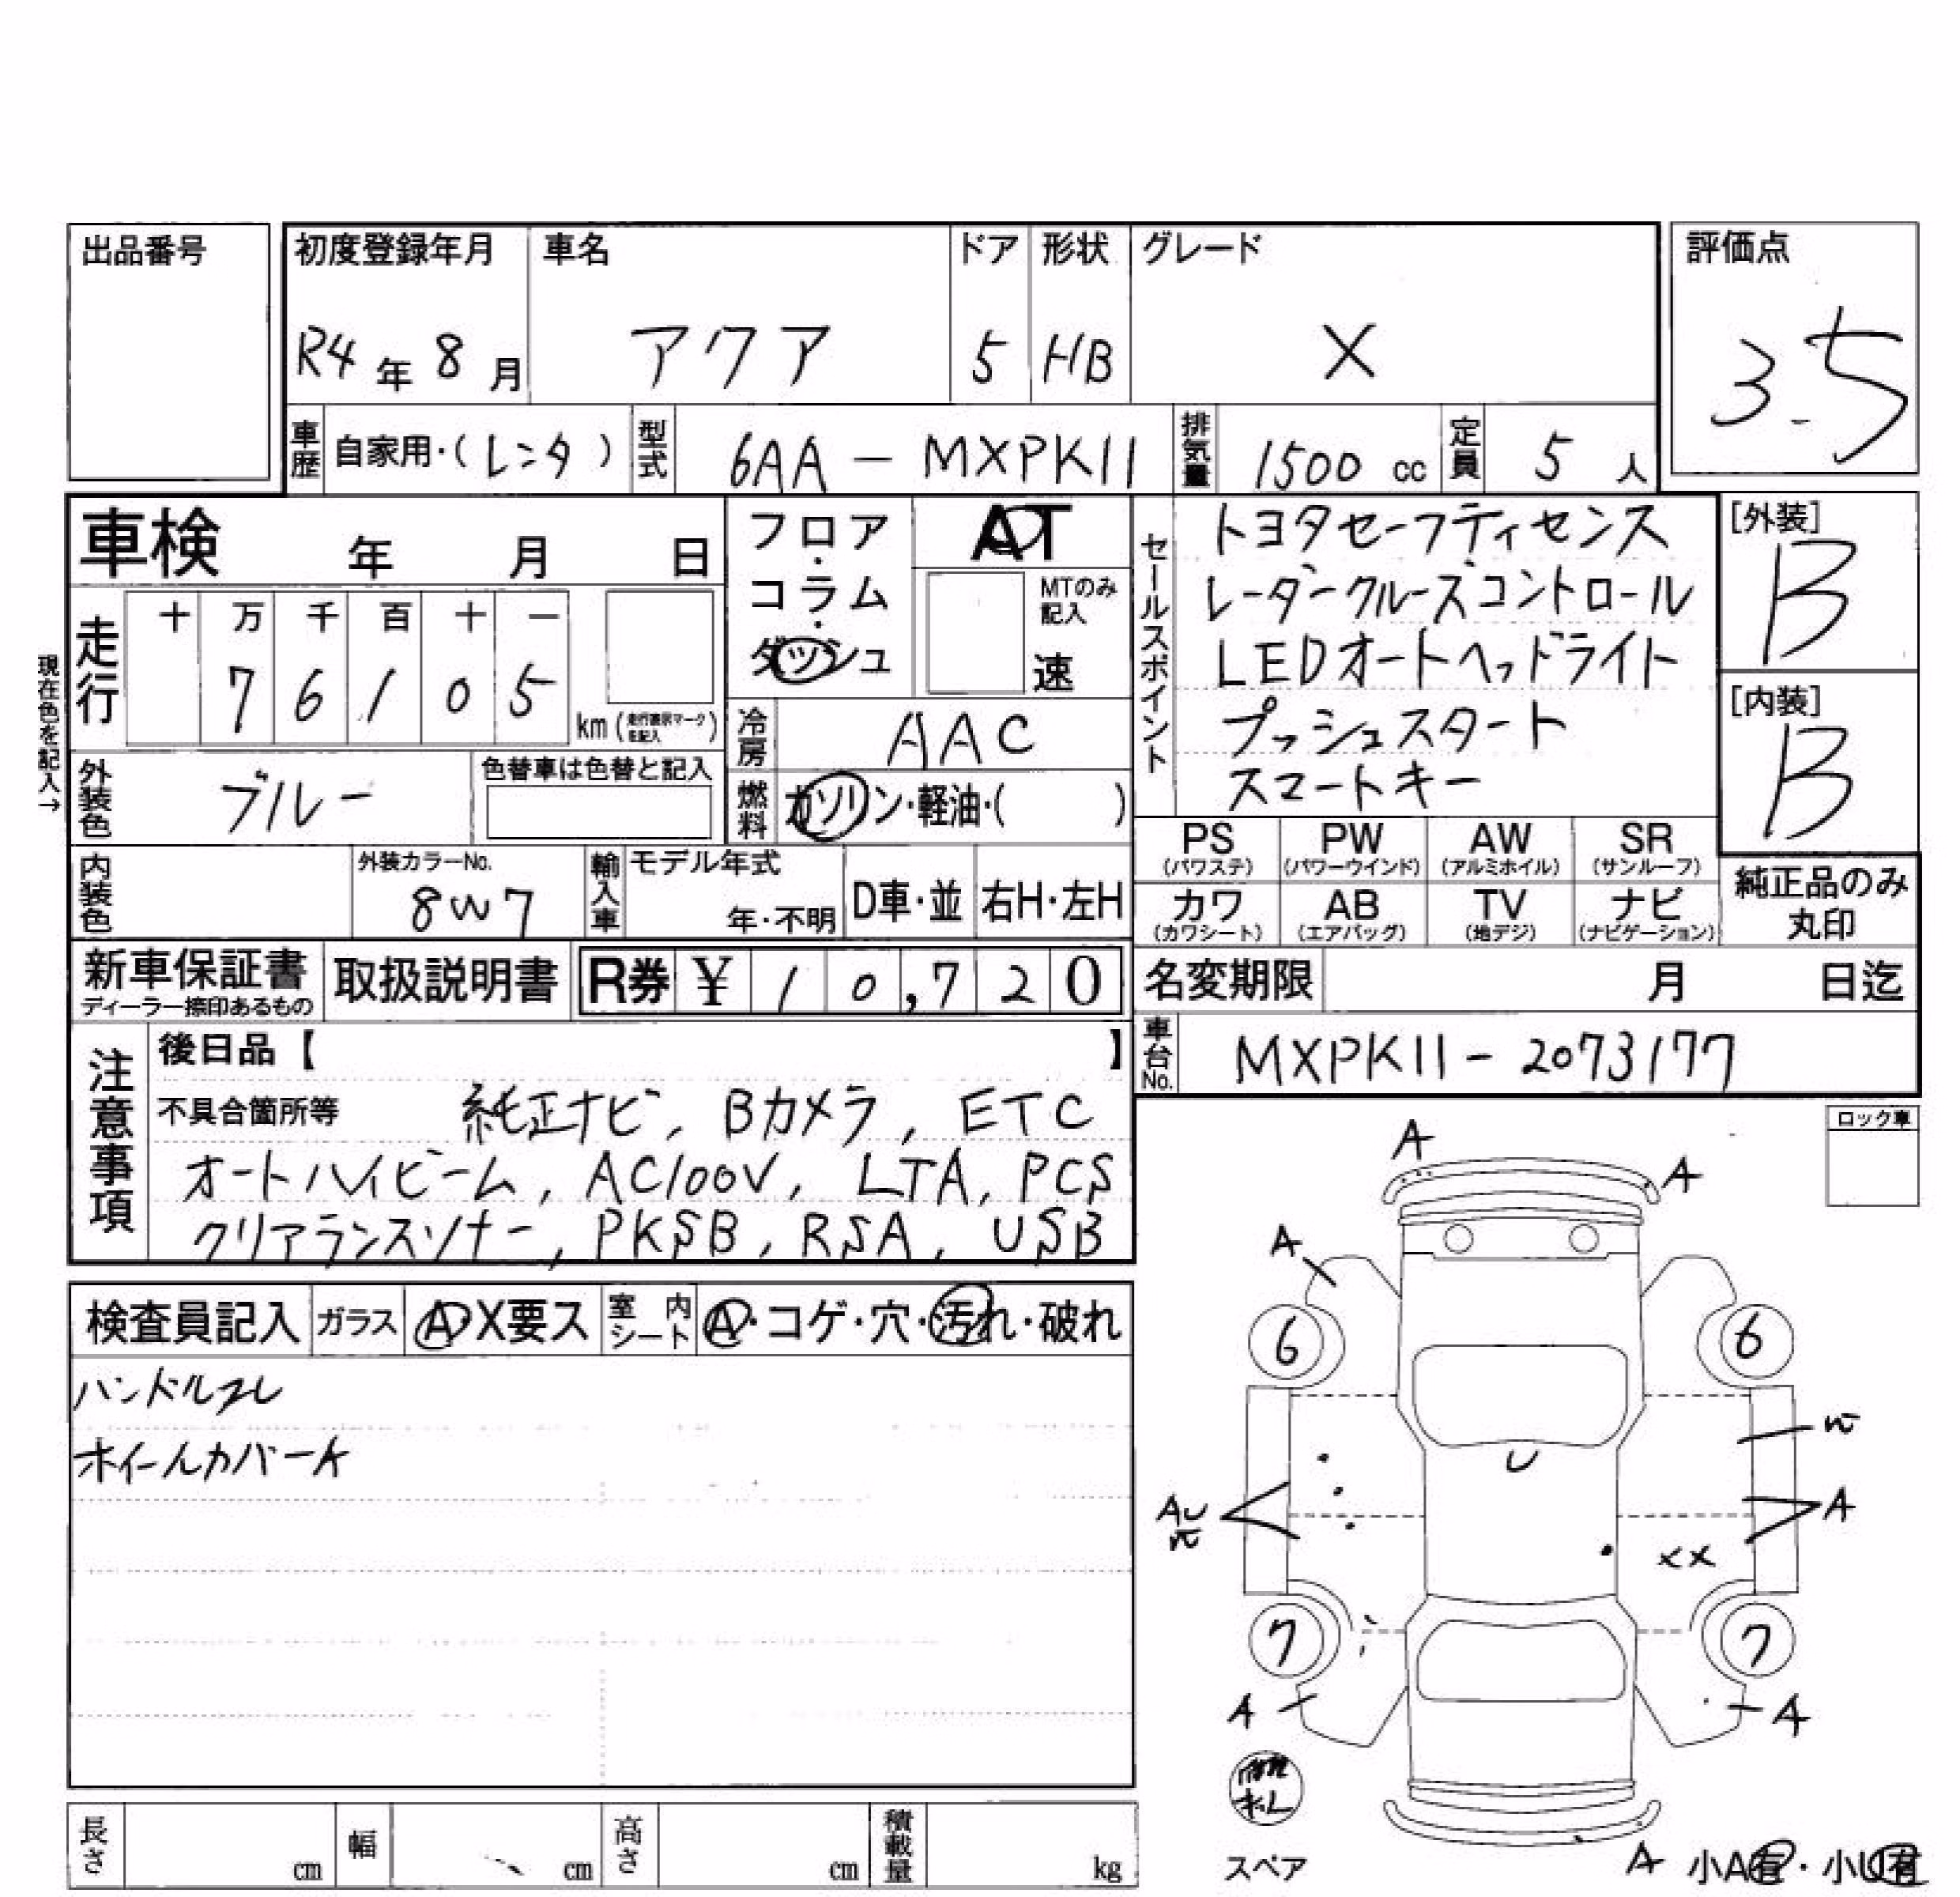 出品番号
初度登録年月 車名 ドア 形状 グレード 評価点
R4年 8月 アクア 5 HB X 3.5
車歴 自家用・(レンタ) 型式 6AA - MXPK11 排気量 1500 cc 定員 5 人
車検 年 月 日
フロア・コラム・ダッシュ
AT
MTのみ記入
速
セールスポイント
トヨタセーフティセンス
レーダークルーズコントロール
LEDオートヘッドライト
プッシュスタート
スマートキー
[外装]
B
[内装]
B
現在色を記入→
走行 十 万 千 百 十 一
7 6 1 0 5 km (走行表示マークを記入)
冷房 AAC
外装色 ブルー 色替車は色替と記入
燃料 ガソリン・軽油・( )
PS (パワステ) PW (パワーウインド) AW (アルミホイル) SR (サンルーフ)
カワ (カワシート) AB (エアバッグ) TV (地デジ) ナビ (ナビゲーション)
純正品のみ丸印
内装色 外装カラーNo. 8W7 輸入車 モデル年式 年・不明 D車・並 右H・左H
新車保証書 ディーラー捺印あるもの 取扱説明書 R券 ¥ 10,720
名変期限 月 日迄
車台No. MXPK11 - 2073177
注意事項
後日品【 】
不具合箇所等 純正ナビ, Bカメラ, ETC
オートハイビーム, AC100V, LTA, PCS
クリアランスソナー, PKSB, RSA, USB
ロック車
検査員記入 ガラス A・X要ス 室内シート A・コゲ・穴・汚れ・破れ
ハンドルスレ
ホイールカバーA
A
A
A
6
6
U
AU
A
XX
7
7
A
A
スペア
A 小A有・小U有
長さ cm 幅 cm 高さ cm 積載量 kg